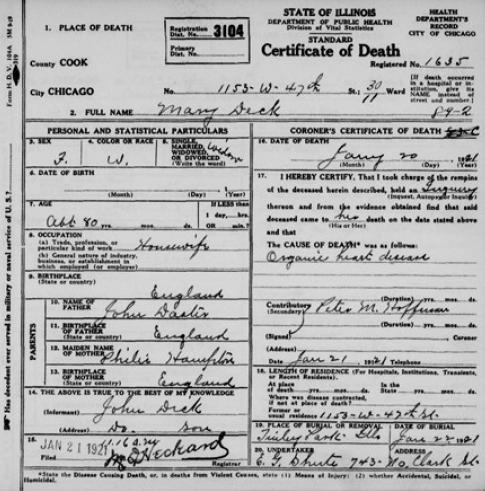 STATE OF ILLINOIS
DEPARTMENT OF PUBLIC HEALTH
Division of Vital Statistics
STANDARD
Certificate of Death
HEALTH DEPARTMENT'S RECORD
CITY OF CHICAGO
1. PLACE OF DEATH
Registration Dist. No. 3104
Primary Dist. No.
County COOK
Registered No. 1635
City CHICAGO
No. 1153-W-47th St.; 30 Ward
11
[If death occurred in a hospital or institution, give its NAME instead of street and number.]
2. FULL NAME Mary Deck 89-2
PERSONAL AND STATISTICAL PARTICULARS
3. SEX F.
4. COLOR OR RACE W.
5. SINGLE, MARRIED, WIDOWED, OR DIVORCED (Write the word) Widow
6. DATE OF BIRTH
(Month) (Day) (Year)
7. AGE Abt 80 yrs. mos. ds.
If LESS than 1 day, hrs. OR min.?
8. OCCUPATION
(a) Trade, profession, or particular kind of work Housewife
(b) General nature of industry, business, or establishment in which employed (or employer)
9. BIRTHPLACE
(State or country) England
PARENTS
10. NAME OF FATHER John
11. BIRTHPLACE OF FATHER
(State or country) England
12. MAIDEN NAME OF MOTHER Hampton
13. BIRTHPLACE OF MOTHER
(State or country) England
14. THE ABOVE IS TRUE TO THE BEST OF MY KNOWLEDGE
(Informant) John Deck
(Address) Do. son
15.
Filed JAN 21 1921
Registrar
CORONER'S CERTIFICATE OF DEATH
16. DATE OF DEATH
Jany 20 1921
(Month) (Day) (Year)
17. I HEREBY CERTIFY, That I took charge of the remains
of the deceased herein described, held an Inquiry
(Inquest, Autopsy or Inquiry)
thereon and from the evidence obtained find that said
deceased came to his death on the date stated above
(His or Her)
and that
The CAUSE OF DEATH* was as follows:
Organic heart disease
(Duration) yrs. mos. ds.
Contributory
(Secondary)
(Duration) yrs. mos. ds.
(Signed) Peter M. Hoffman
CORONER
(Address)
Date Jan 21, 1921 Telephone
18. LENGTH OF RESIDENCE (For Hospitals, Institutions, Transients, or Recent Residents).
At place of death yrs. mos. ds.
In the State yrs. mos. ds.
Where was disease contracted, if not at place of death?
Former or usual residence 1153-W-47th St.
19. PLACE OF BURIAL OR REMOVAL
Tinley Park Ills
DATE OF BURIAL
Jan 22 1921
20. UNDERTAKER
E. G. 743-No, Clark St.
*State the Disease Causing Death, or, in deaths from Violent Causes, state (1) Means of Injury; and (2) whether Accidental, Suicidal, or Homicidal.